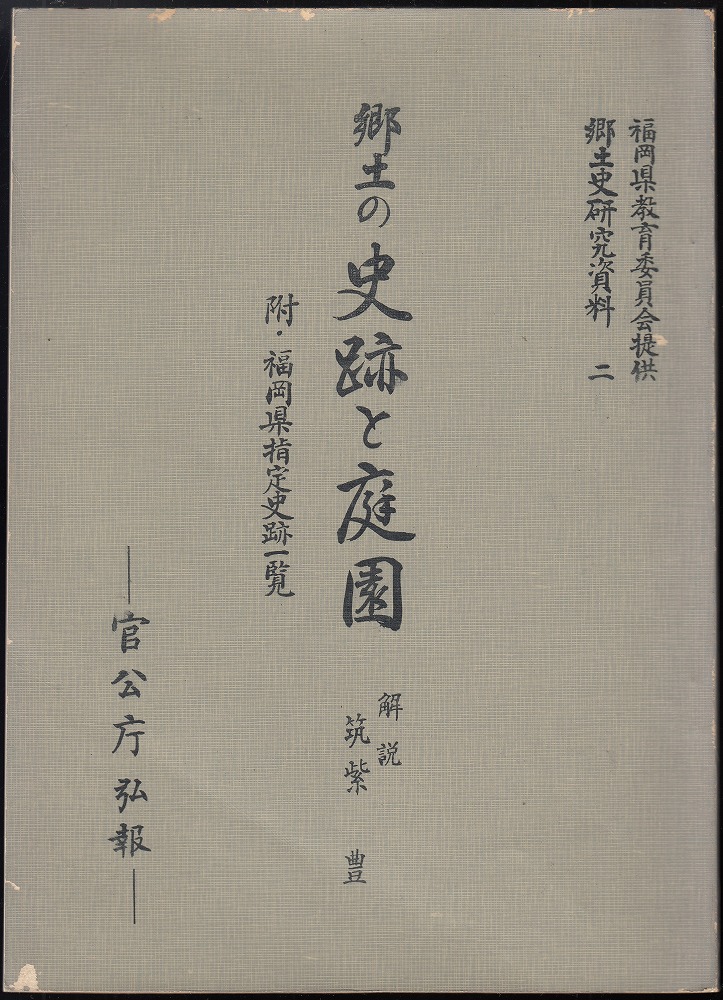 福岡県教育委員会提供
郷土史研究資料 二
郷土の史跡と庭園
附・福岡県指定史跡一覧
解説
筑紫 豊
―官公庁弘報―